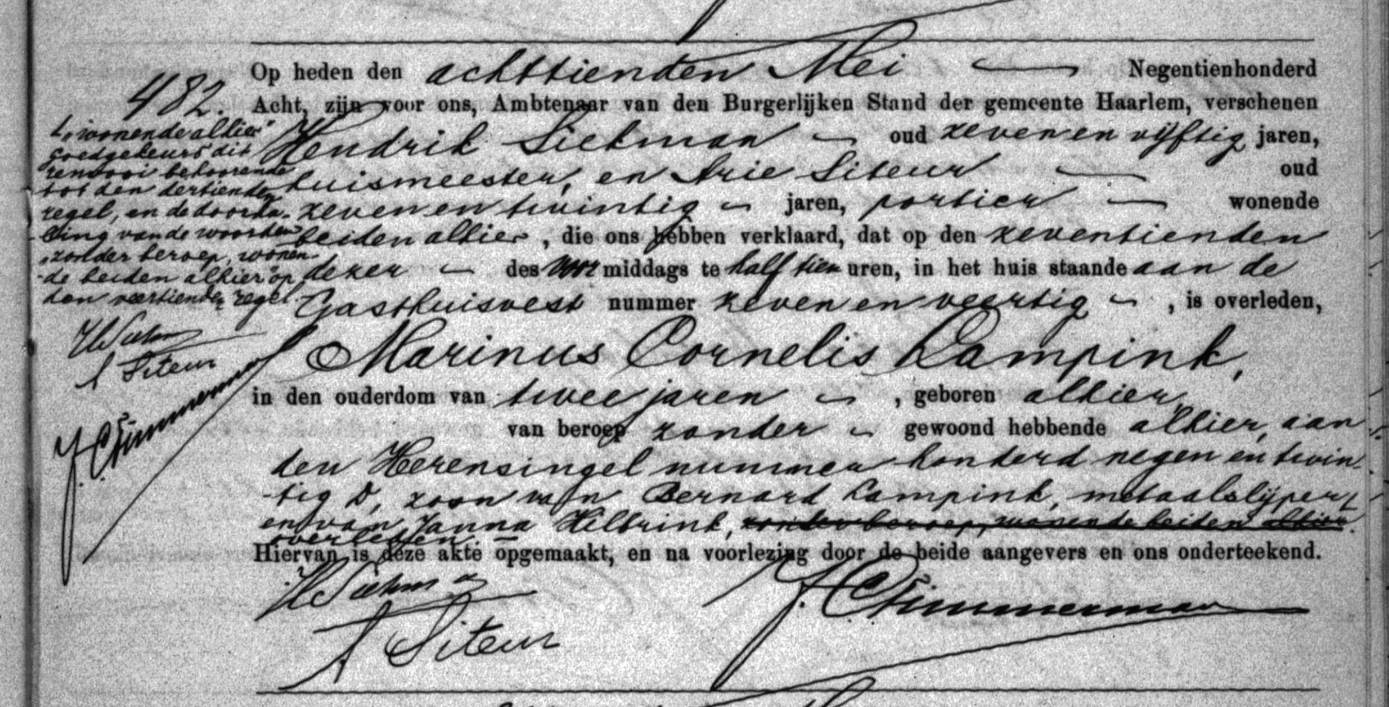 Op heden den achttienden Mei Negentienhonderd
482. Acht, zijn voor ons, Ambtenaar van den Burgerlijken Stand der gemeente Haarlem, verschenen
Hendrik Siekman oud zeven en vijftig jaren,
huismeester, en Arie Siteur oud
zeven en twintig jaren, portier wonende
beiden alhier, die ons hebben verklaard, dat op den zeventienden
dezer des voormiddags te half tien uren, in het huis staande aan de
Gasthuisvest nummer zeven en veertig, is overleden,
Marinus Cornelis Lampink,
in den ouderdom van twee jaren, geboren alhier,
van beroep zonder gewoond hebbende alhier, aan
den Herensingel nummer honderd negen en twin-
tig D, zoon van Bernard Lampink, metaalslijper
en van Janna Hilbrink, zonder beroep, wonende beiden alhier.
overleden.
Hiervan is deze akte opgemaakt, en na voorlezing door de beide aangevers en ons onderteekend.
HSiekman
A Siteur
J. C. Timmerman
L, wonende alhier"
goedgekeurd dit
renvooi behoorende
tot den dertienden
regel, en de doorha-
ling van de woorden
"zonder beroep, wonen-
de beiden alhier" op
den veertienden regel.
HSiekman
A Siteur
J. C. Timmerman